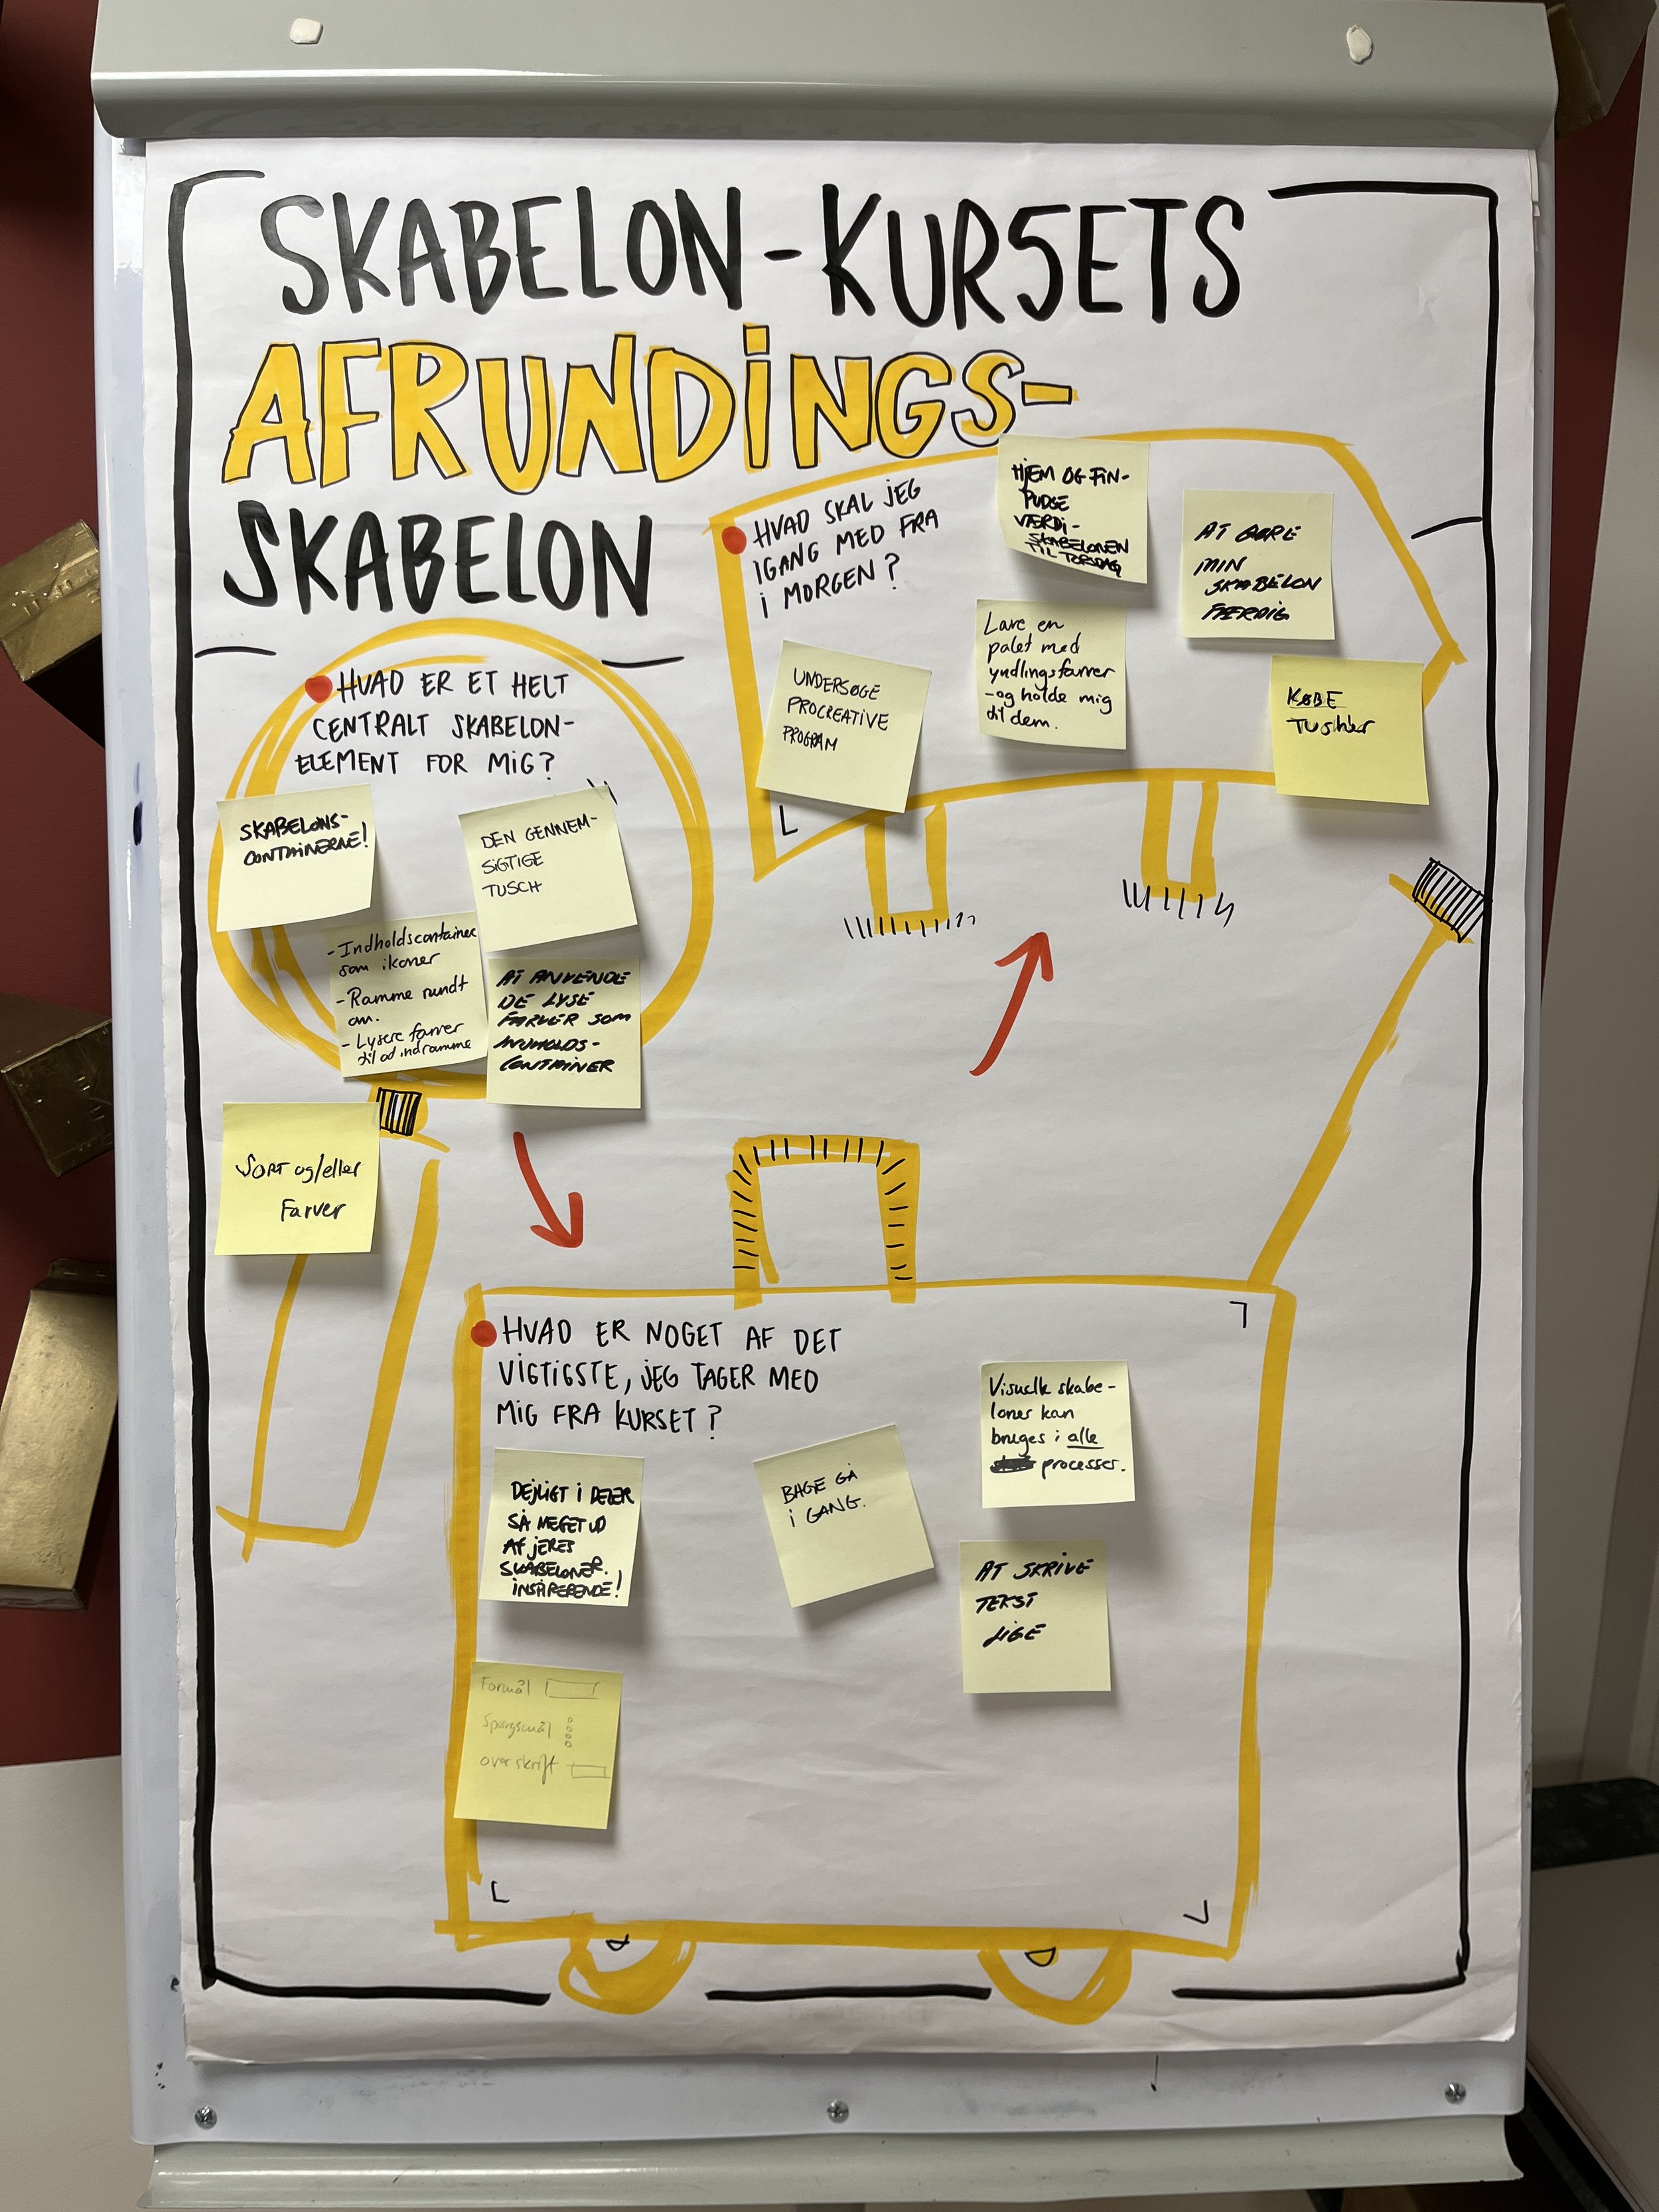 SKABELON-KURSETS
AFRUNDINGS-
SKABELON
HVAD ER ET HELT
CENTRALT SKABELON-
ELEMENT FOR MIG?
SKABELONS-
CONTAINERNE!
DEN GENNEM-
SIGTIGE
TUSCH
- Indholdscontainer
som ikoner
- Ramme rundt
om.
- Lysere farver
til at indramme
AT ANVENDE
DE LYSE
FARVER SOM
INDHOLDS-
CONTAINER
SORT og/eller
Farver
HVAD ER NOGET AF DET
VIGTIGSTE, JEG TAGER MED
MIG FRA KURSET?
DEJLIGT I DELER
SÅ MEGET UD
AF JERES
SKABELONER.
INSPIRERENDE!
BAGE GÅ
I GANG.
Visuelle skabe-
loner kan
bruges i alle
processer.
AT SKRIVE
TEKST
LIGE
Formål
Spørgsmål
overskrift
HVAD SKAL JEG
IGANG MED FRA
I MORGEN?
HJEM OG FIN-
PUDSE
VÆRDI-
SKABELONEN
TIL TORSDAG
AT GØRE
MIN
SKABELON
FÆRDIG
UNDERSØGE
PROCREATIVE
PROGRAM
Lave en
palet med
yndlingsfarver
- og holde mig
til dem.
KØBE
Tusher